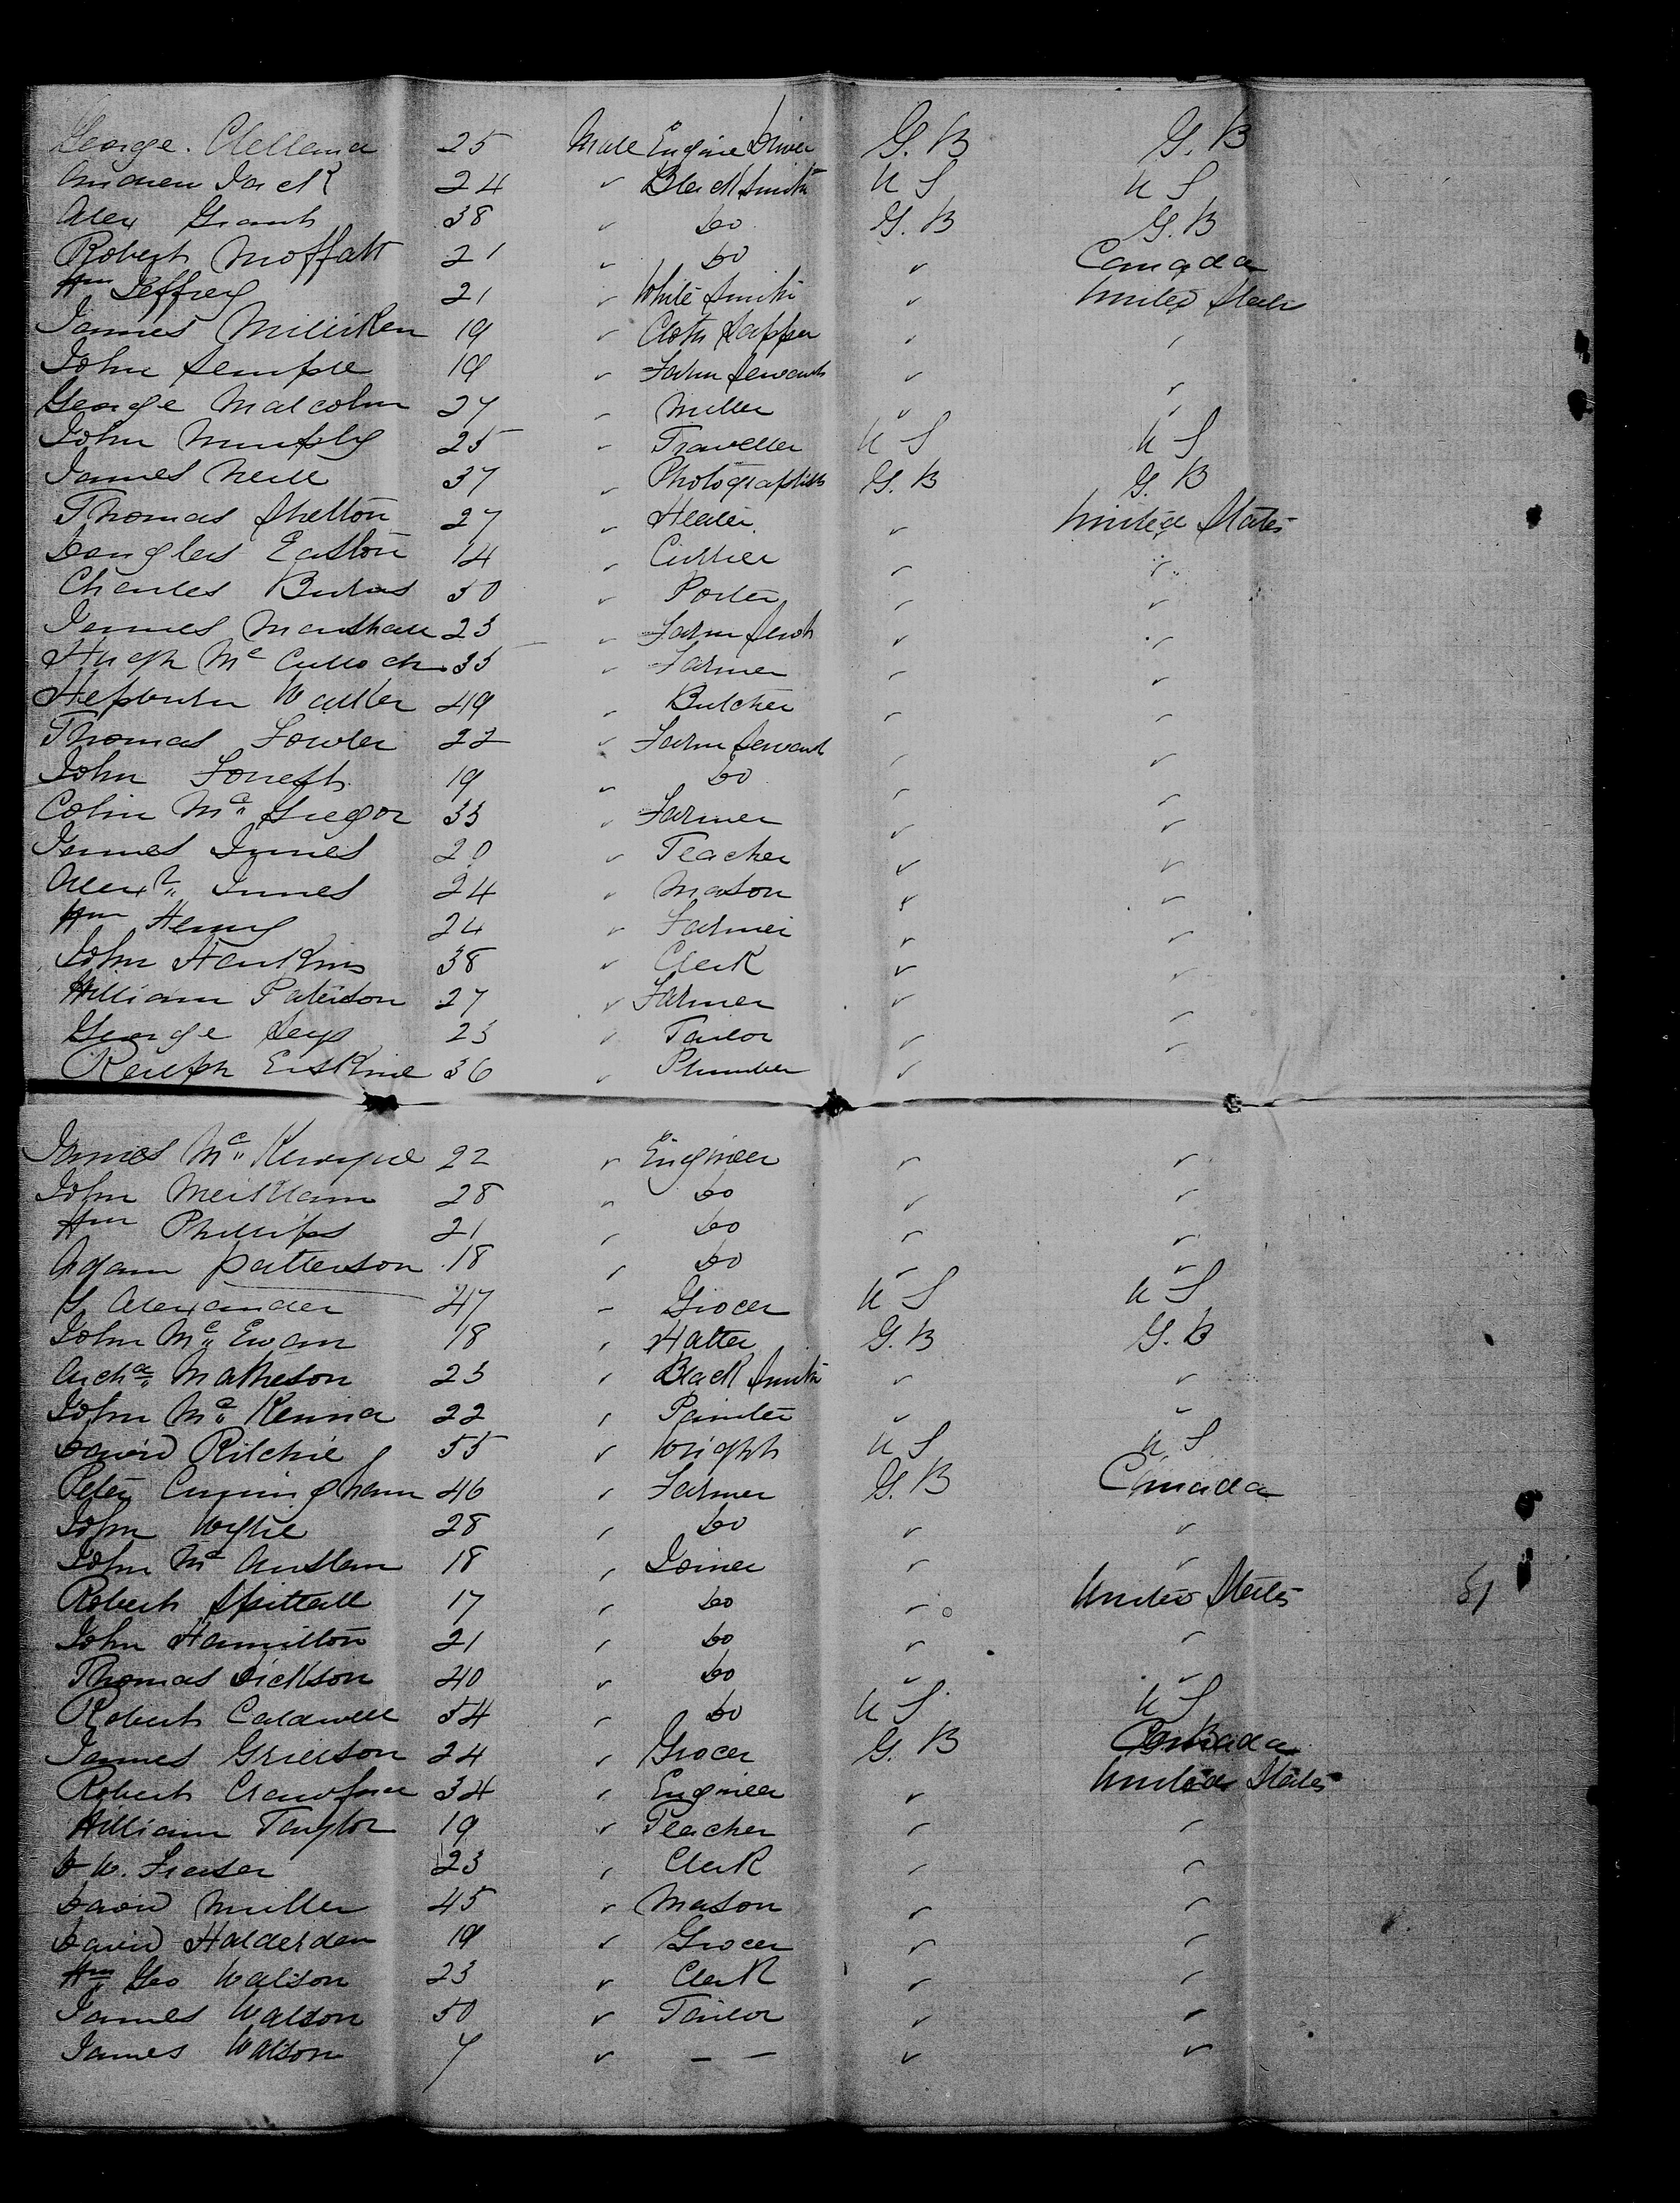 George Clelland 25 Male Engine Driver G. B G. B
Andrew Jack 24 " Black Smith U S U S
Alex Grant 38 " Do G. B G. B
Robert Moffatt 21 " Do " Canada
Wm Jeffrey 21 " White Smith " United States
James Milliken 19 " Cloth Lapper " "
John Semple 19 " Farm Servant " "
George Malcolm 27 " Miller " "
John Murphy 25 " Traveller U S U S
James Neill 37 " Photographist G. B G. B
Thomas Shelton 27 " Heater " United States
Douglas Easton 14 " Currier " "
Charles Burns 30 " Porter " "
James Marshall 23 " Farm Servt " "
Hugh Mc Culloch 35 " Farmer " "
Hepburn Walker 49 " Butcher " "
Thomas Fowler 22 " Farm Servant " "
John Forrest 19 " Do " "
Colin Mc Gregor 33 " Farmer " "
James Innes 20 " Teacher " "
Alexr Innes 24 " Mason " "
Wm Henry 24 " Farmer " "
John Hawkins 38 " Clerk " "
William Paterson 27 " Farmer " "
George 23 " Tailor " "
Ralph Erskine 36 " Plumber "
James Mc 22 " Engineer " "
John Meiklam 28 " Do " "
Wm Phillips 21 " Do " "
Adam Patterson 18 " Do " "
Alexander 47 " Grocer U S U S
John Mc Ewan 18 " Hatter G. B G. B
Archd Matheson 23 " Black Smith " "
John Mc Kenna 22 " Painter " "
David Ritchie 55 " Wright U S U S
Peter Cunningham 46 " Farmer G. B Canada
John Wylie 28 " Do " "
John Mc Auslan 18 " Joiner " "
Robert Spittall 17 " Do " United States 51
John Hamilton 21 " Do " "
Thomas Dickson 40 " Do " "
Robert Caldwell 54 " Do U S U S
James Grierson 24 " Grocer G. B Canada
Robert Crawford 34 " Engineer " United States
William Taylor 19 " Teacher " "
D W. Fraser 23 " Clerk " "
David Miller 45 " Mason " "
David Halderden 19 " Grocer " "
Wm Geo Watson 23 " Clerk " "
James Watson 50 " Tailor " "
James Watson 7 " — — " "